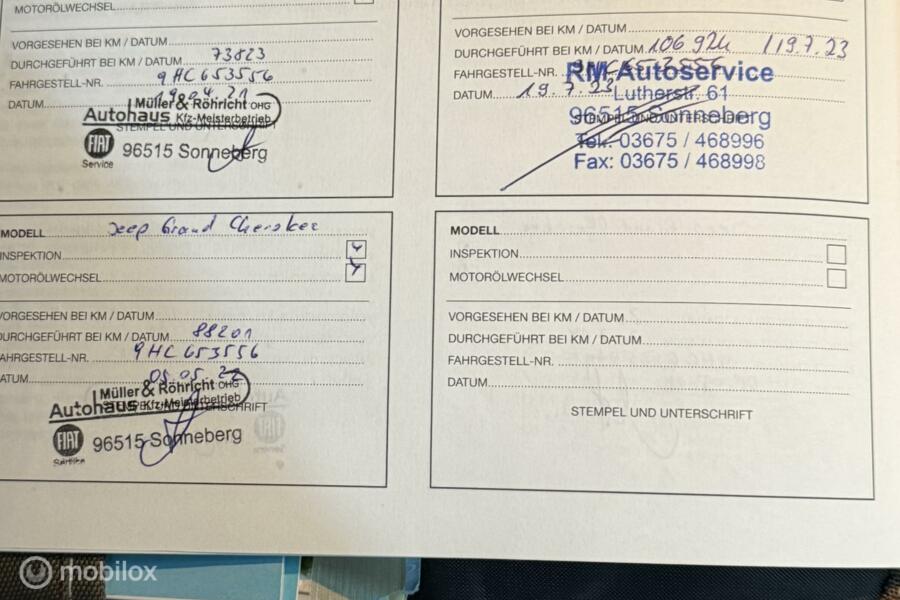 MOTORÖLWECHSEL
VORGESEHEN BEI KM / DATUM
DURCHGEFÜHRT BEI KM / DATUM 73823
FAHRGESTELL-NR. 9HC653556
DATUM 19.04.21
Müller & Röhricht OHG
Autohaus Kfz-Meisterbetrieb
STEMPEL UND UNTERSCHRIFT
FIAT
Service
96515 Sonneberg
VORGESEHEN BEI KM / DATUM
DURCHGEFÜHRT BEI KM / DATUM 106 924 / 19.7.23
FAHRGESTELL-NR.
RM Autoservice
DATUM 19.7.23
Lutherstr. 61
96515 Sonneberg
STEMPEL UND UNTERSCHRIFT
Tel.: 03675 / 468996
Fax: 03675 / 468998
MODELL Jeep Grand Cherokee
INSPEKTION
MOTORÖLWECHSEL
VORGESEHEN BEI KM / DATUM
DURCHGEFÜHRT BEI KM / DATUM 88201
FAHRGESTELL-NR. 9HC653556
DATUM 05.05.22
Müller & Röhricht OHG
Autohaus Kfz-Meisterbetrieb
STEMPEL UND UNTERSCHRIFT
FIAT
Service
96515 Sonneberg
MODELL
INSPEKTION
MOTORÖLWECHSEL
VORGESEHEN BEI KM / DATUM
DURCHGEFÜHRT BEI KM / DATUM
FAHRGESTELL-NR.
DATUM
STEMPEL UND UNTERSCHRIFT
mobilox